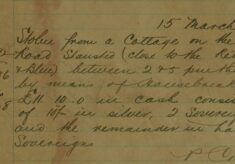 15 March
Stolen from a Cottage on the
Road Stansted (close to the
& Blue) between 2 & 5 pm
by means of Housebreak
£11. 10. 0 in cash consis
of 10/- in silver, 2 Sovere
and the remainder in ha
Sovereigns
P.C.